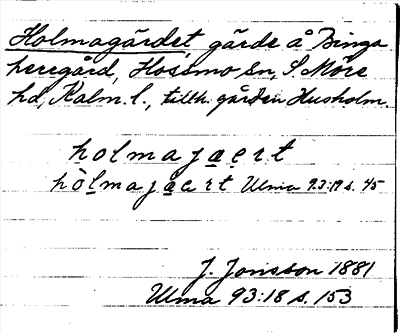 Holmagärdet, gärde å Binga
herregård, Hossmo sn, S. Möre
hd, Kalm. l., tillh. gården Husholm.
holmajæ̣ẹrt
hòḷmajæ̣art Ulma 93:19 s. 45
J. Jonsson 1881
Ulma 93:18 s. 153